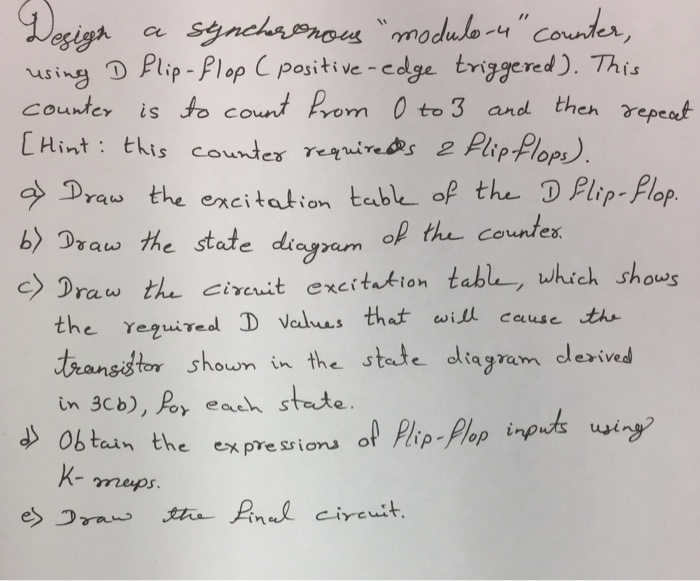 Design a synchronous "modulo-4" counter,
using D flip-flop (positive-edge triggered). This
counter is to count from 0 to 3 and then repeat
[Hint: this counter requires 2 flip flops).
a) Draw the excitation table of the D flip-flop.
b) Draw the state diagram of the counter.
c) Draw the circuit excitation table, which shows
the required D values that will cause the
transistor shown in the state diagram derived
in 3(b), for each state.
d) Obtain the expressions of flip-flop inputs using
K-maps.
e) Draw the final circuit.